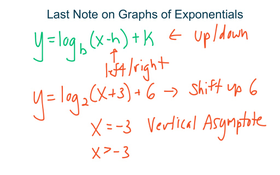 Last Note on Graphs of Exponentials
y = log_b (x-h) + k ← up/down
left/right
y = log_2 (x+3) + 6 → shift up 6
x = -3 Vertical Asymptote
x > -3